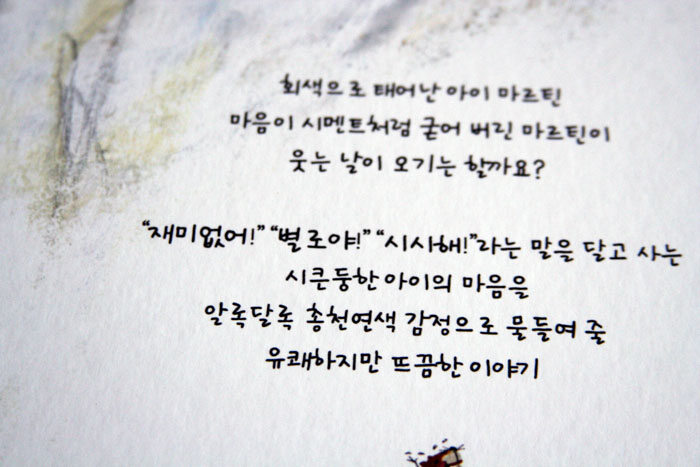 회색으로 태어난 아이 마르틴
마음이 시멘트처럼 굳어 버린 마르틴이
웃는 날이 오기는 할까요?
“재미없어!” “별로야!” “시시해!”라는 말을 달고 사는
시큰둥한 아이의 마음을
알록달록 총천연색 감정으로 물들여 줄
유쾌하지만 뜨끔한 이야기